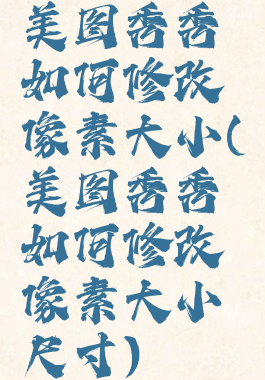 美图秀秀
如何修改
像素大小(
美图秀秀
如何修改
像素大小
尺寸)